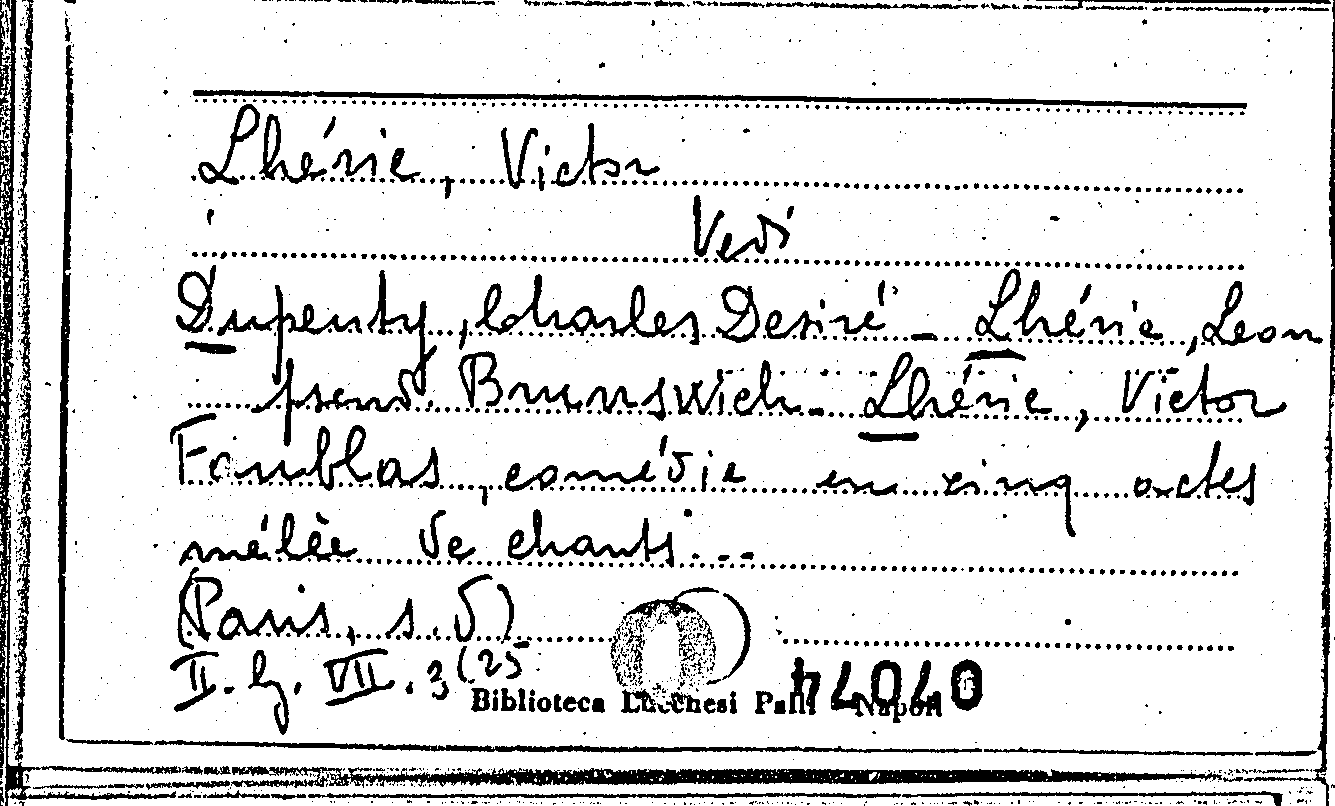 Lhérie, Victor
Vedi
Dupenty, Charles Desiré - Lhérie, Leon
pseud. Brunswich - Lhérie, Victor
Faublas, comédie en cinq actes
mélèe de chants...
(Paris, s.d)
II. G. VII. 3 (25
Biblioteca Lucchesi Palli Napoli